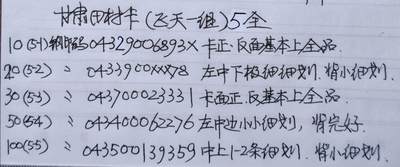 甘肃田村卡(飞天一组)5全
10(5-1)钢号码04329006893X 卡正.反面基本上全品.
20(5-2) 〃 043390010XX78 左中下极细细划.背小细划.
30(5-3) 〃 043700023331 卡面正.反基本上全品.
50(5-4) 〃 043400062276 左中边小小细划,背完好.
100(5-5) 〃 043500139359 中上1-2条细划.背小细划.